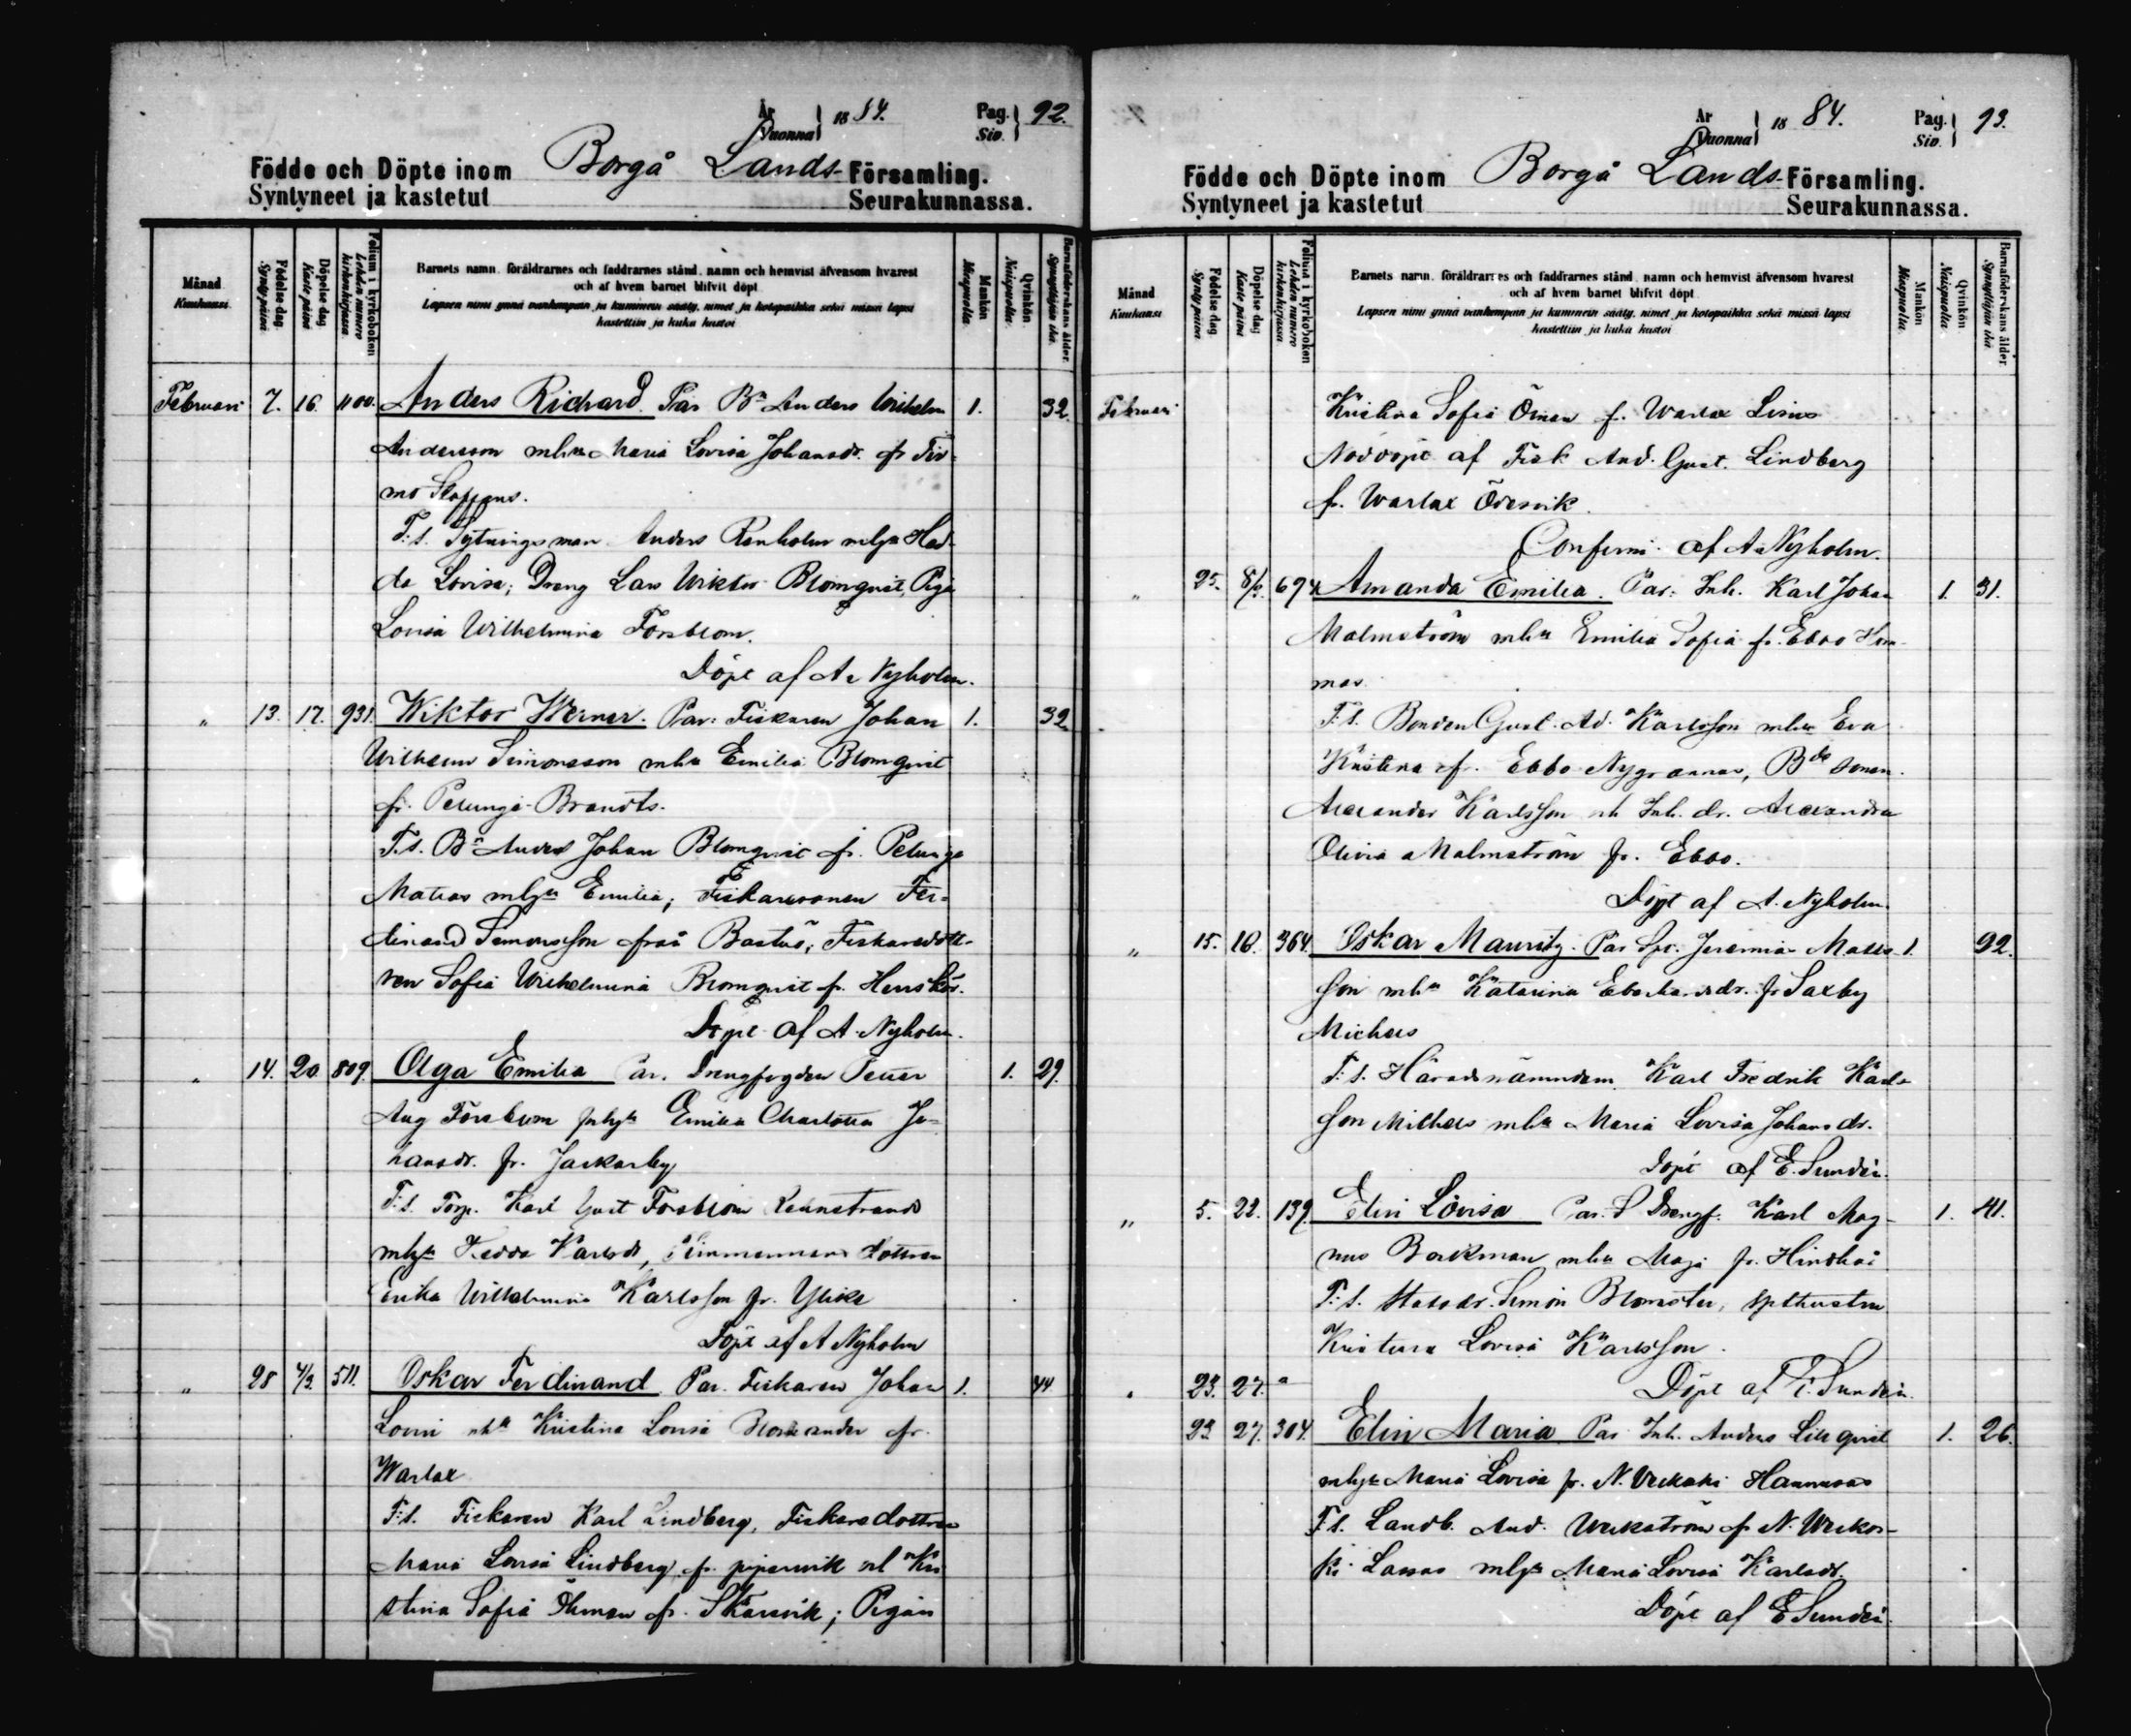 År Vuonna } 1884. Pag. Siv. } 92.
Födde och Döpte inom Borgå Lands- Församling.
Syntyneet ja kastetut Seurakunnassa.
Månad Kuukausi
Födelse dag. Synty päivä
Döpelse dag Kaste päivä
Folium i kyrkoboken Lehden numero kirkonkirjassa.
Barnets namn, föräldrarnes och faddrarnes stånd, namn och hemvist äfvensom hvarest
och af hvem barnet blifvit döpt
Lapsen nimi ynnä vanhempain ja kummein sääty, nimet ja kotopaikka sekä missä lapsi
kastettiin ja kuka kastoi
Mankön Miespuolta.
Qvinkön Naispuolta.
Barnaföderskans ålder. Synnyttäjän ikä.
Februari 7. 16. 1100. Anders Richard. Par Bn Anders Wilhelm 1. 32.
Andersson mhu Maria Lovisa Johansdr. fr
mo Staffans.
F.s. Sytningsman Anders Renholm mhu Hed-
da Lovisa; Dreng Lars Wiktor Blomqvist, Piga
Lovisa Wilhelmina Forsblom.
Döpt af A. Nyholm.
" 13. 17. 931. Wiktor Werner. Par: Fiskaren Johan 1. 32
Wilhelm Simonsson mhu Emilia Blomqvist
fr. Pelinge Brandts.
F.s. Bn Anders Johan Blomqvist fr. Pelinge
Matias mhu Emilia; Fiskaresonen Fer-
dinand Simonsson från Bastuö; Fiskaredott-
ren Sofia Wilhelmina Blomqvist fr.
Döpt af A. Nyholm.
" 14. 20. 809. Olga Emilia Par. Drengfogden Petter 1. 29.
Aug Forsblom mhu Emilia Charlotta Jo-
hansdr. fr. Jackarby
F.s. Torp. Karl Gust Forsblom
mhu Hedda Karlsdr, Timmermans dottren
Erika Wilhelmina Karlsson fr. Ylike
Döpt af A Nyholm
" 28 4/3. 511. Oskar Ferdinand Par. Fiskaren Johan 1. 44
mhu Kristina Lovisa fr.
Warlax
F.s. Fiskaren Karl Lindberg, Fiskaredottren
Maria Lovisa Lindberg fr. piparvik och Kri
stina Sofia Öhman fr. Skarsvik; Pigan
År Vuonna } 1884. Pag. Siv. } 93.
Födde och Döpte inom Borgå Lands- Församling.
Syntyneet ja kastetut Seurakunnassa.
Månad Kuukausi
Födelse dag. Synty päivä
Döpelse dag Kaste päivä
Folium i kyrkoboken Lehden numero kirkonkirjassa.
Barnets namn, föräldrarnes och faddrarnes stånd, namn och hemvist äfvensom hvarest
och af hvem barnet blifvit döpt
Lapsen nimi ynnä vanhempain ja kummein sääty, nimet ja kotopaikka sekä missä lapsi
kastettiin ja kuka kastoi
Mankön Miespuolta.
Qvinkön Naispuolta.
Barnaföderskans ålder. Synnyttäjän ikä.
Februari Kristina Sofia Öman fr. Warlax
Nöddöpt af Fisk. And. Gust. Lindberg
fr. Warlax Ödesvik.
Confirm. af A. Nyholm.
" 25. 8/3. 694 Amanda Emilia. Par: Inh. Karl Johan 1. 31.
Malmström mhu Emilia Sofia fr. Ebbo Hom-
mas.
F.s. Bonden Gust. Ad. Karlsson mhu Eva
Kristina fr. Ebbo Nygrannas, Bde sonen
Alexander Karlsson och Inh. dr. Alexandra
Olivia Malmström fr. Ebbo.
Döpt af A. Nyholm.
" 15. 18. 364. Oskar Mauritz. Par Jeremia Matts 1.
son mhu Katarina fr Saxby
Michels
F.s. Häradsnämndem. Karl Fredrik Karls-
son Michels mhu Maria Lovisa Johansdr.
Döpt af E. Sundén.
" 5. 22. 139. Elin Lovisa Par. Drengf. Karl Mag- 1. 41.
nus mhu Maja fr. Hindhår
F.s. Simon Blomster,
Kristina Lovisa Karlsson.
" 23. 27. " Döpt af E. Sundén.
23. 27. 304. Elin Maria Par Inh. Anders Lillqvist 1. 26.
mhu Maria Lovisa fr. N. Veckoski Hannusas
F.s. Landb. And. Weckström fr N. Weckos-
ki Lassas mhu Maria Lovisa Karlsdr.
Döpt af E Sundén.